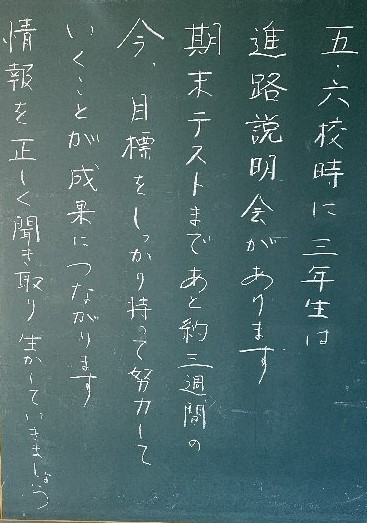 五・六校時に三年生は
進路説明会があります
期末テストまであと約三週間の
今、目標をしっかり持って努力して
いくことが成果につながります
情報を正しく聞き取り生かしていきましょう